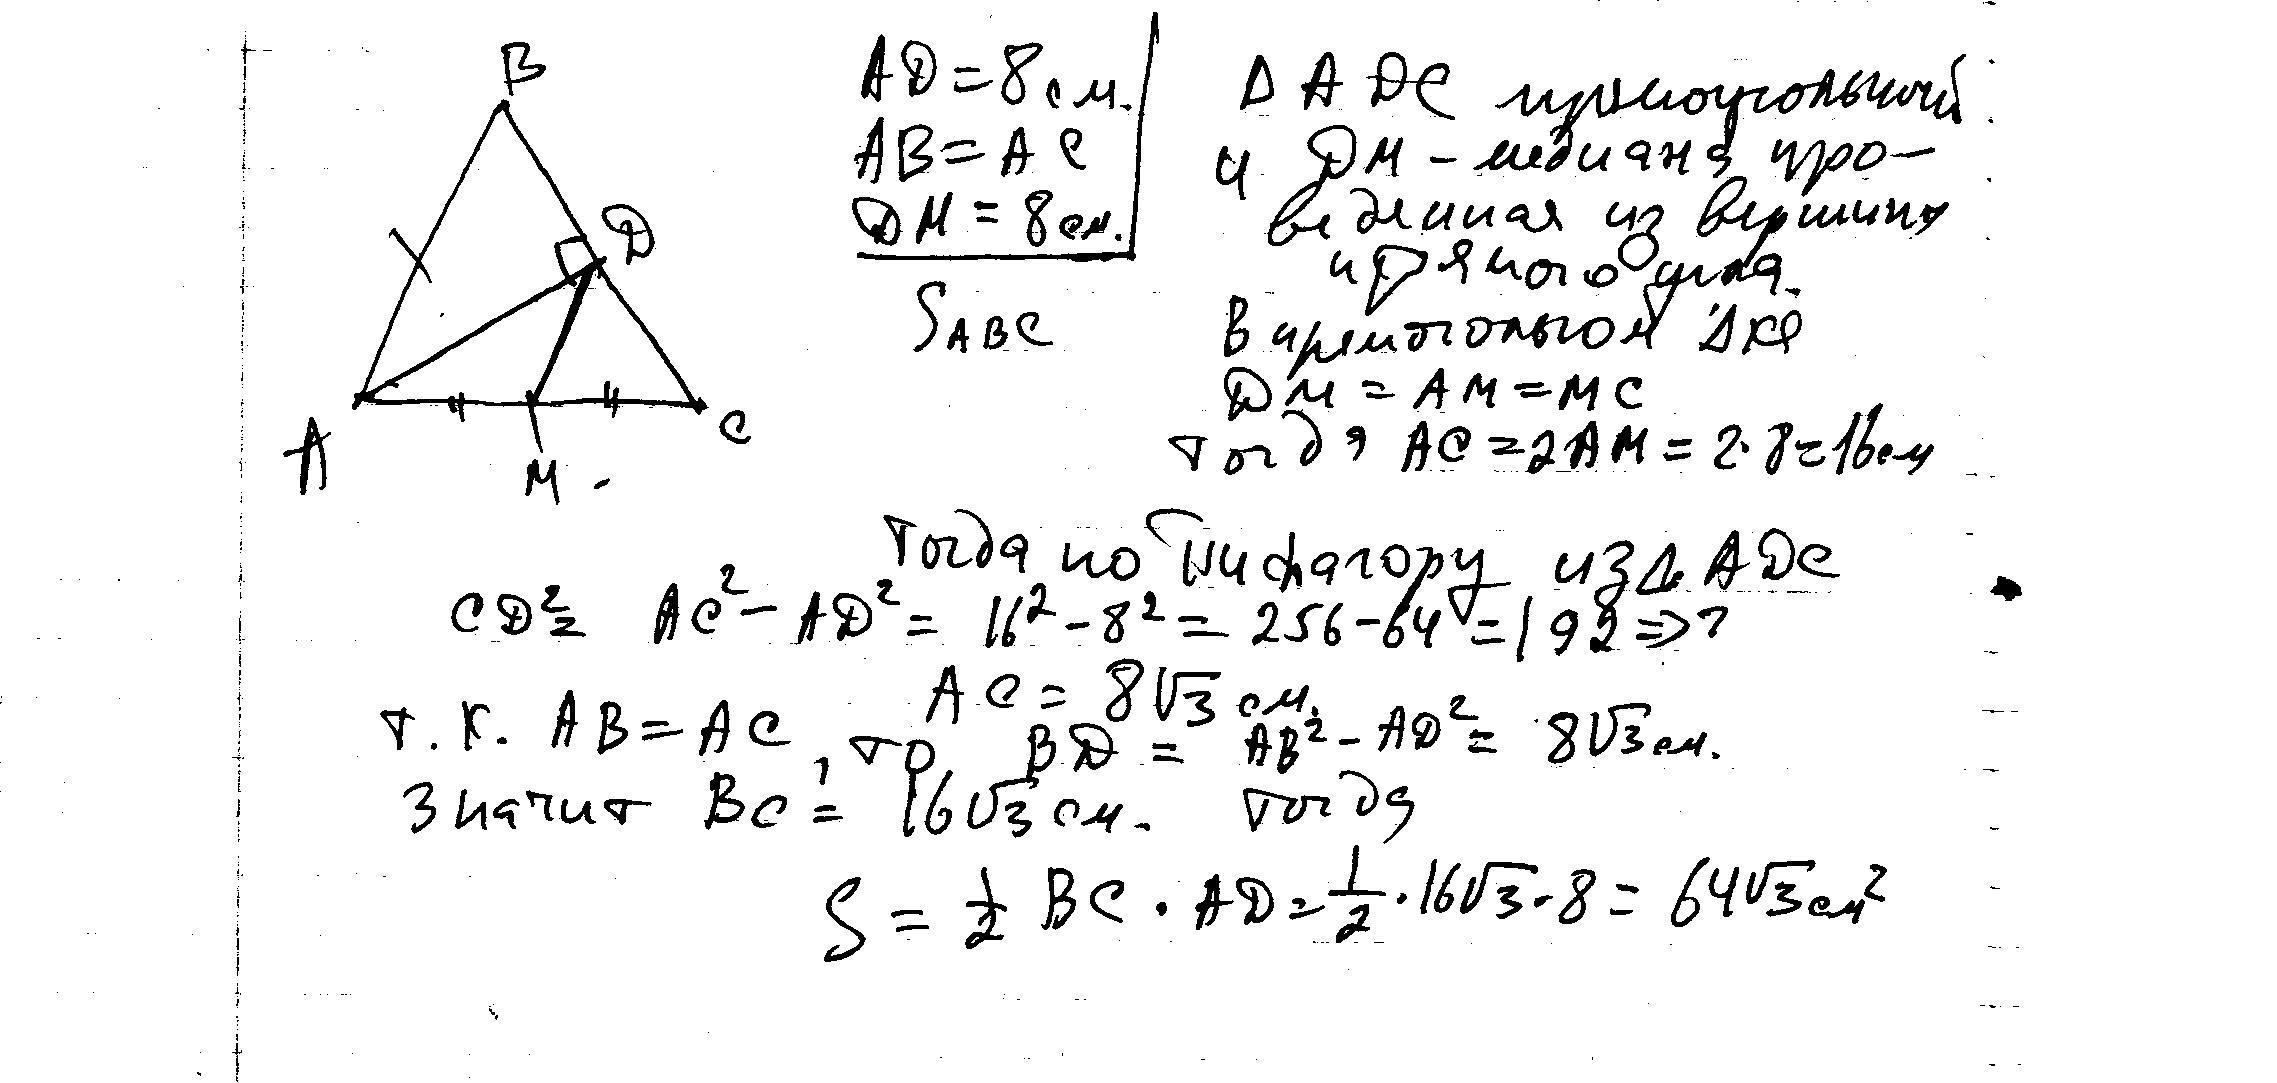 B
D
A
C
M
AD = 8 см.
AB = AC
DM = 8 см.
S ABC
Δ ADC прямоугольный
и DM – медиана про–
веденная из вершины
прямого угла.
В прямоугольном Δке
DM = AM = MC
тогда AC = 2AM = 2·8 = 16 см
Тогда по Пифагору из Δ ADC
CD² = AC² – AD² = 16² – 8² = 256 – 64 = 192 =>
AC = 8√3 см.
т.к. AB = AC, то BD = AB² – AD² = 8√3 см.
Значит BC = 16√3 см. тогда
S = 1/2 BC · AD = 1/2 · 16√3 · 8 = 64√3 см²